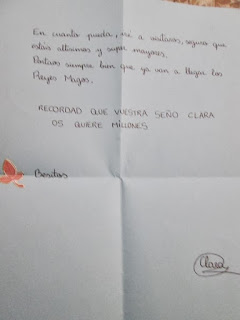 En cuanto pueda, iré a visitaros, seguro que
estáis altísimos y super mayores.
Portaos siempre bien que ya van a llegar los
Reyes Magos.
RECORDAD QUE VUESTRA SEÑO CLARA
OS QUIERE MILLONES
Besitos
Clara